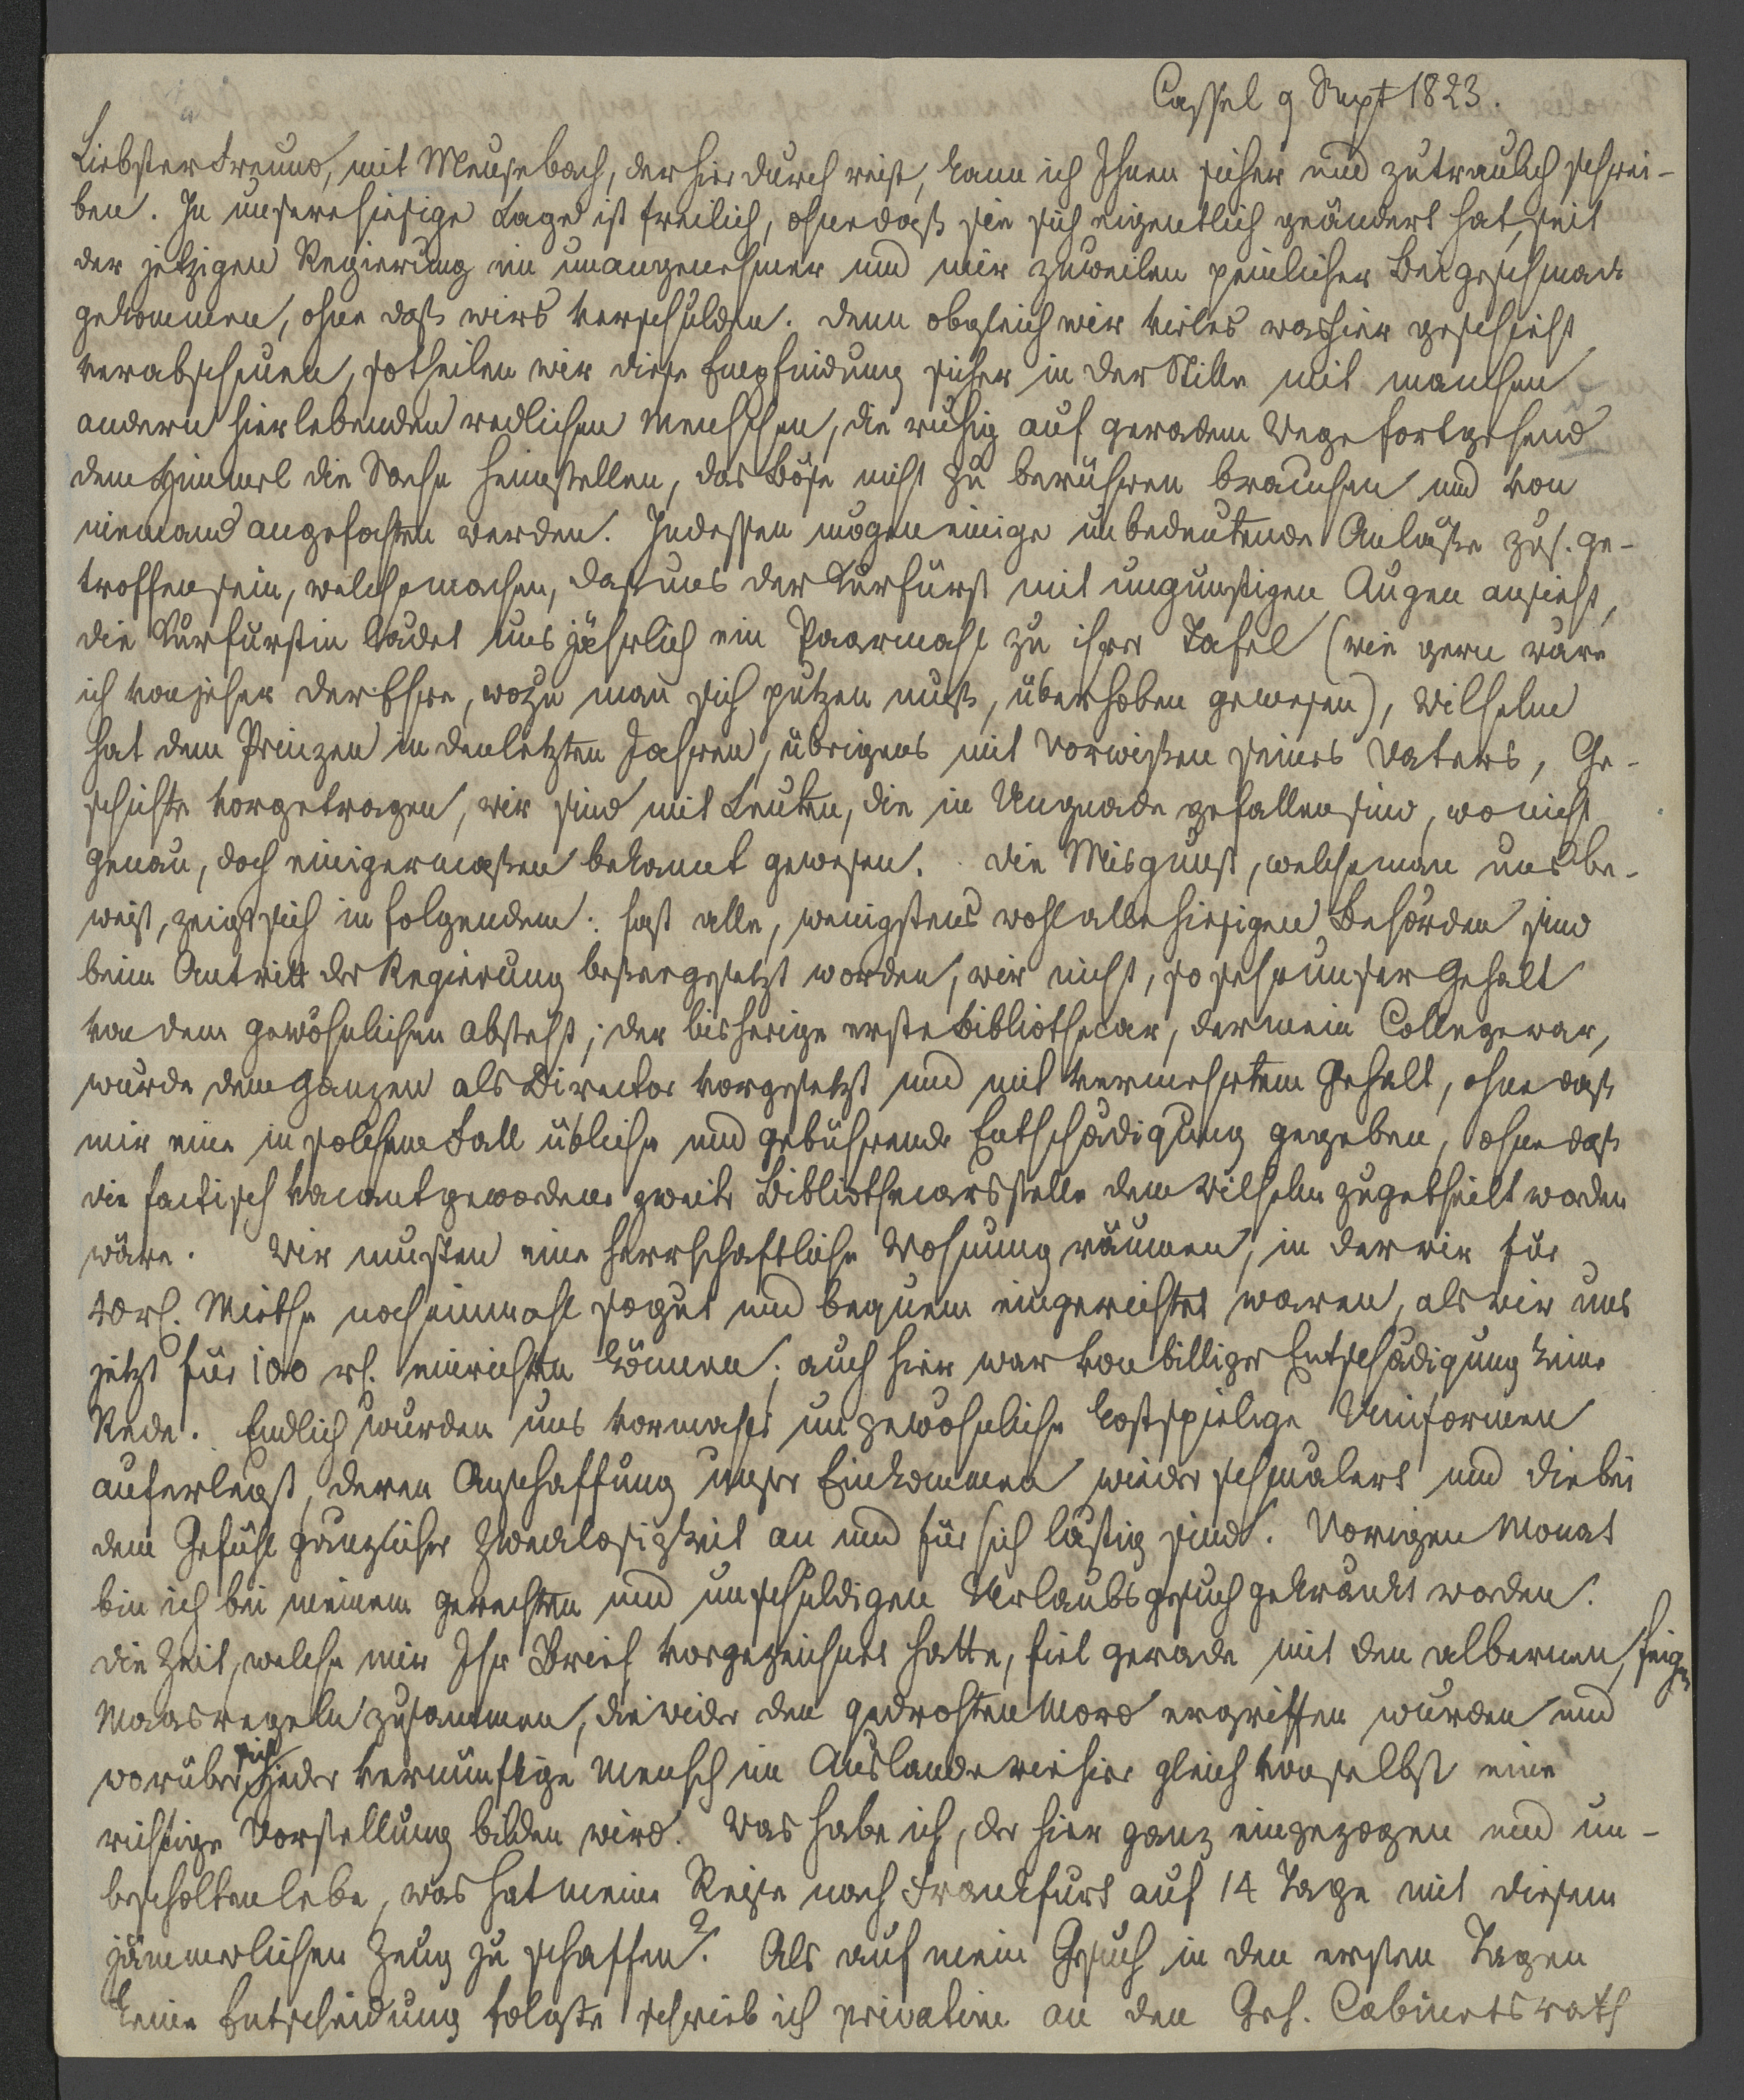 Cassel 9 Sept 1823.
Liebster Freund, mit Meusebach, der hier durch reist, kann ich Ihnen sicher und zutraulich schrei-
ben. In unsere hiesige Lage ist freilich, ohne daß sie sich eigentlich geändert hat, seit
der jetzigen Regierung ein unangenehmer und mir zuweilen peinlicher Beigeschmack
gekommen, ohne daß wirs verschulden. denn obgleich wir vieles was hier geschieht
verabscheuen, so theilen wir diese Empfindung sicher in der Stille mit manchen
andern hier lebenden redlichen Menschen, die ruhig auf geradem Wege fortgehend
dem Himmel die Sache heimstellen, das Böse nicht zu berühren brauchen und von
niemand angefochten werden. Indessen mögen einige unbedeutende Anläße zus. ge-
troffen sein, welche machen, daß uns der Kurfürst mit ungünstigen Augen ansieht,
die Kurfürstin ladet uns jährlich ein Paarmahl zu ihrer Tafel (wie gern wäre
ich von jeher der Ehre, wozu man sich putzen muß, überhoben gewesen), Wilhelm
hat dem Prinzen in den letzten Jahren, übrigens mit Vorwißen seines Vaters, Ge-
schichte vorgetragen, wir sind mit Leuten, die in Ungnade gefallen sind, wo nicht
genau, doch einigermaßen bekannt gewesen. die Misgunst, welche man uns be-
weist, zeigt sich in folgendem: fast alle, wenigstens wohl alle hiesigen Behörden sind
beim Antritt der Regierung beßergesetzt worden, wir nicht, so sehr unser Gehalt
von dem gewöhnlichen absteht; der bisherige erste Bibliothecar, der mein College war,
wurde dem Ganzen als Director vorgesetzt und mit vermehrtem Gehalt, ohne daß
mir eine in solchem Fall übliche und gebührende Entschädigung gegeben, ohne daß
die factisch vacant gewordene zweite Bibliothecarsstelle dem Wilhelm zugetheilt worden
wäre. Wir musten eine herrschaftliche Wohnung räumen, in der wir für
rh. Miethe noch einmahl so gut und bequem eingerichtet waren, als wir uns
jetzt für 100 rh. einrichten können; auch hier war von billiger Entschädigung keine
Rede. Endlich wurden uns vormahls ungewöhnliche kostspielige Uniformen
auferlegt, deren Anschaffung unser Einkommen wieder schmälert und die bei
dem Gefühl gänzlicher Zwecklosigkeit an und für sich lästig sind. Vorigen Monat
bin ich bei meinem gerechten und unschuldigen Urlaubsgesuch gekränkt worden.
die Zeit, welche mir Ihr Brief vorgezeichnet hatte, fiel gerade mit den albernen, feigen
Maasregeln zusammen, die wider den gedrohten Mord ergriffen wurden und
worüber sich jeder vernünftige Mensch im Auslande wie hier gleich von selbst eine
richtige Vorstellung bilden wird. Was habe ich, der hier ganz eingezogen und un-
bescholten lebe, was hat meine Reise nach Frankfurt auf 14 Tage mit diesem
jämmerlichen Zeug zu schaffen? Als auf mein Gesuch in den ersten Tagen
keine Entscheidung folgte schrieb ich privatim an den Geh. Cabinetsrath